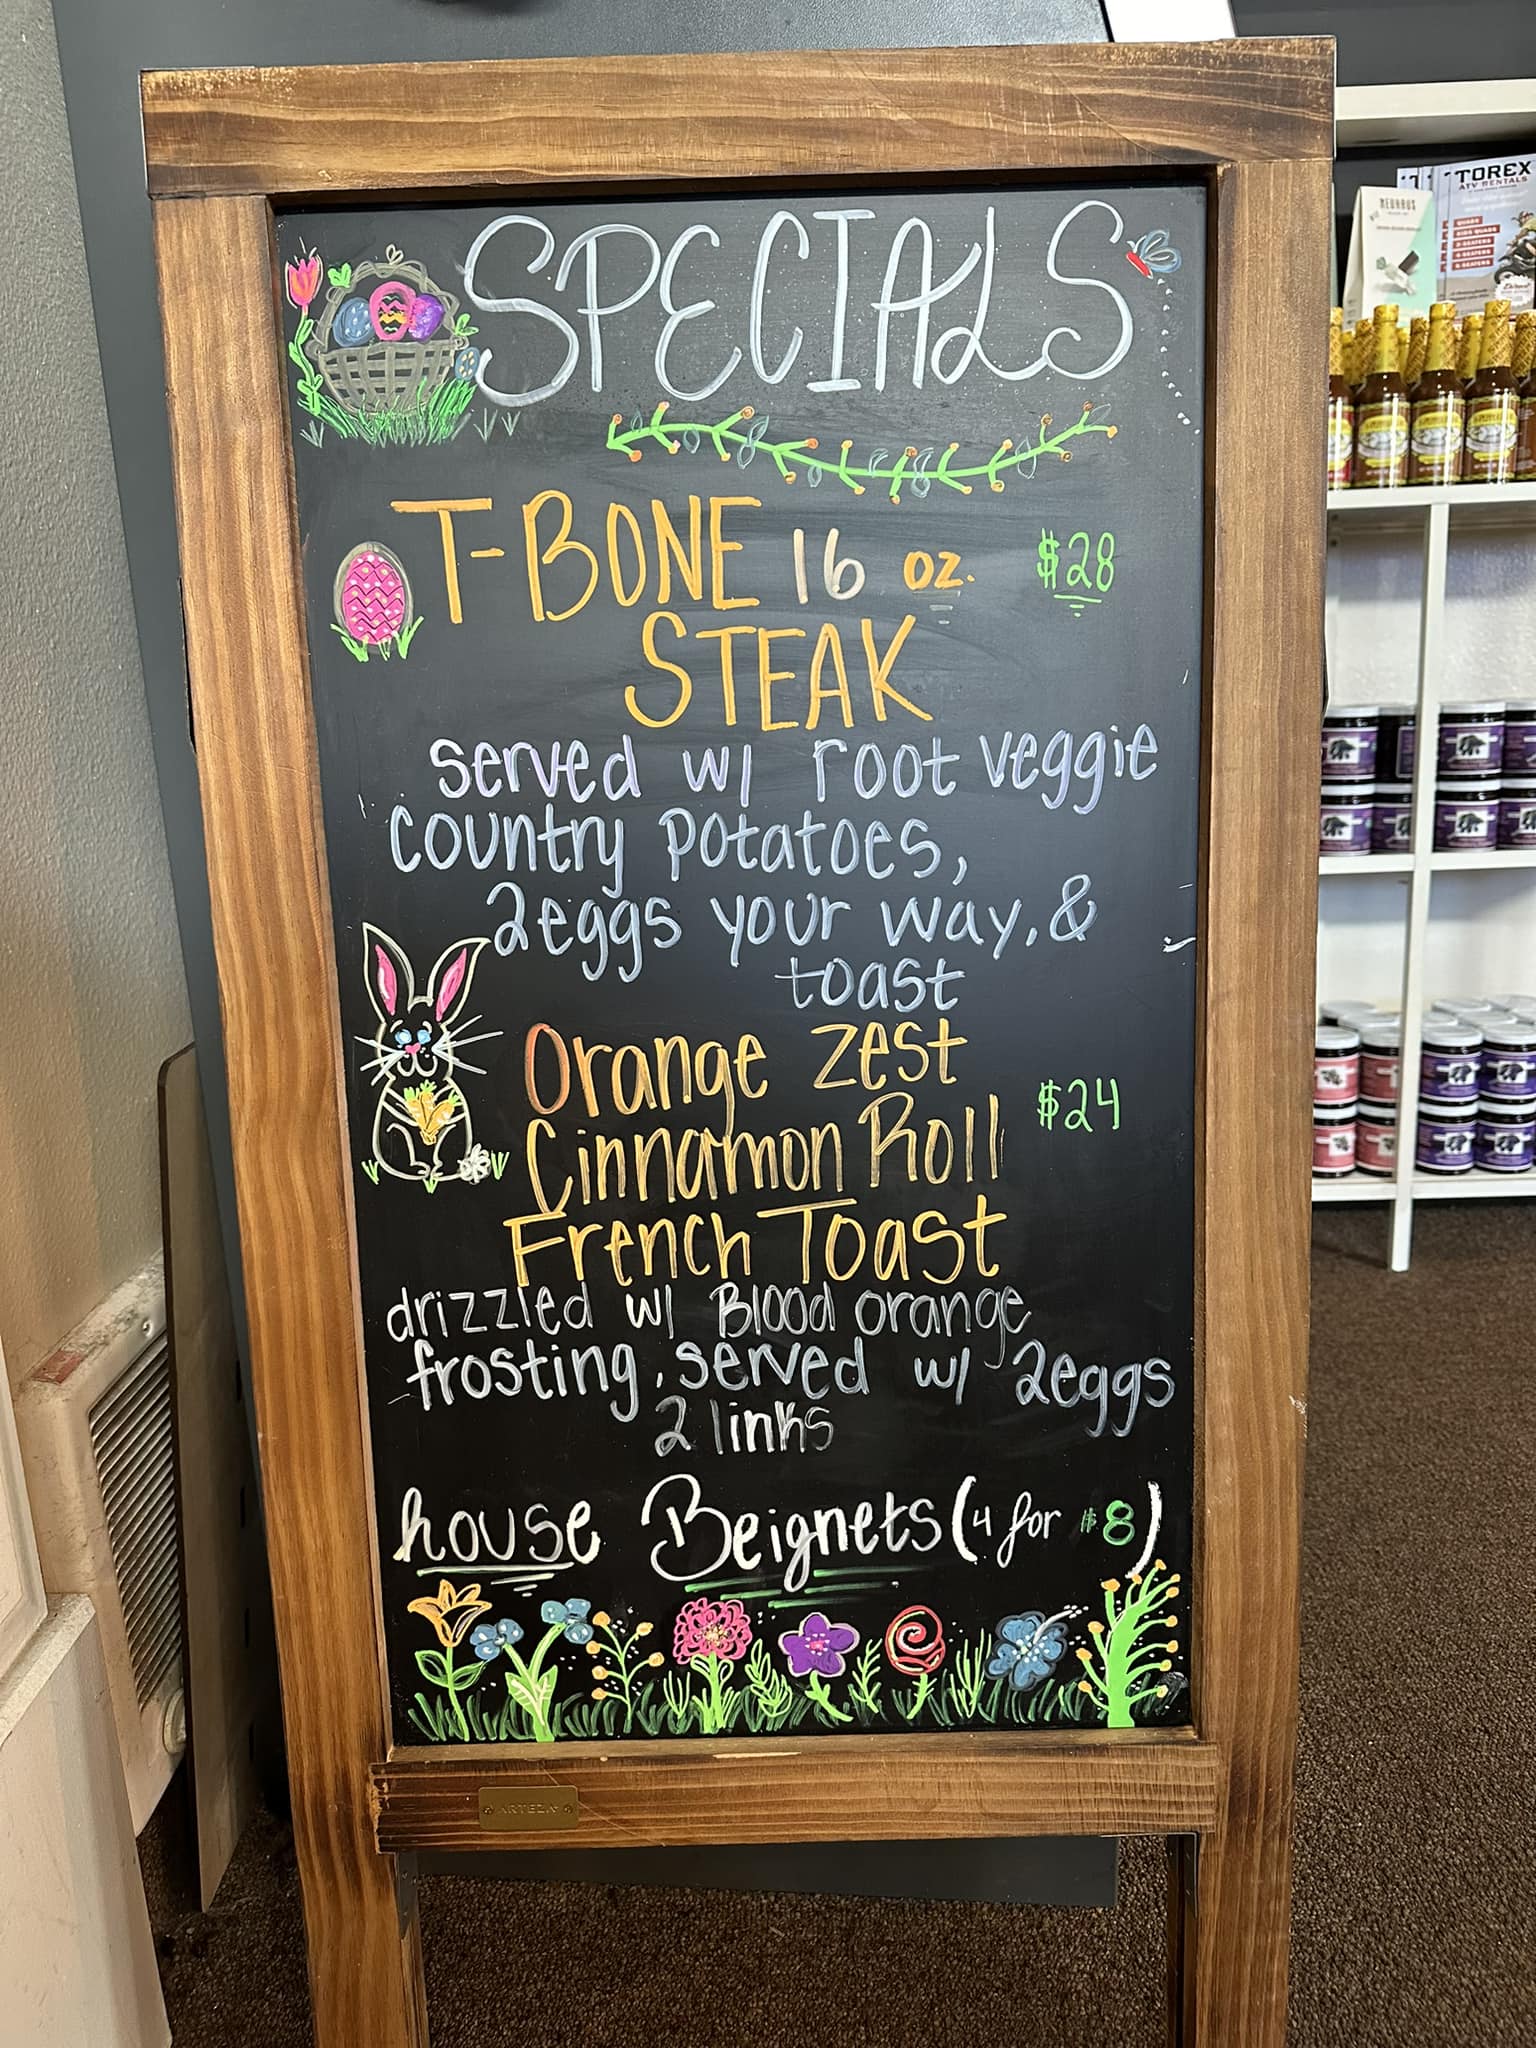 SPECIALS
T-BONE 16 oz. $28
STEAK
served w/ root veggie
country potatoes,
2eggs your way, &
toast
Orange Zest
Cinnamon Roll $24
French Toast
drizzled w/ Blood orange
frosting, served w/ 2eggs
2 links
house Beignets (4 for $8)
ARTEZA
TOREX
ATV RENTALS
NEUHAUS